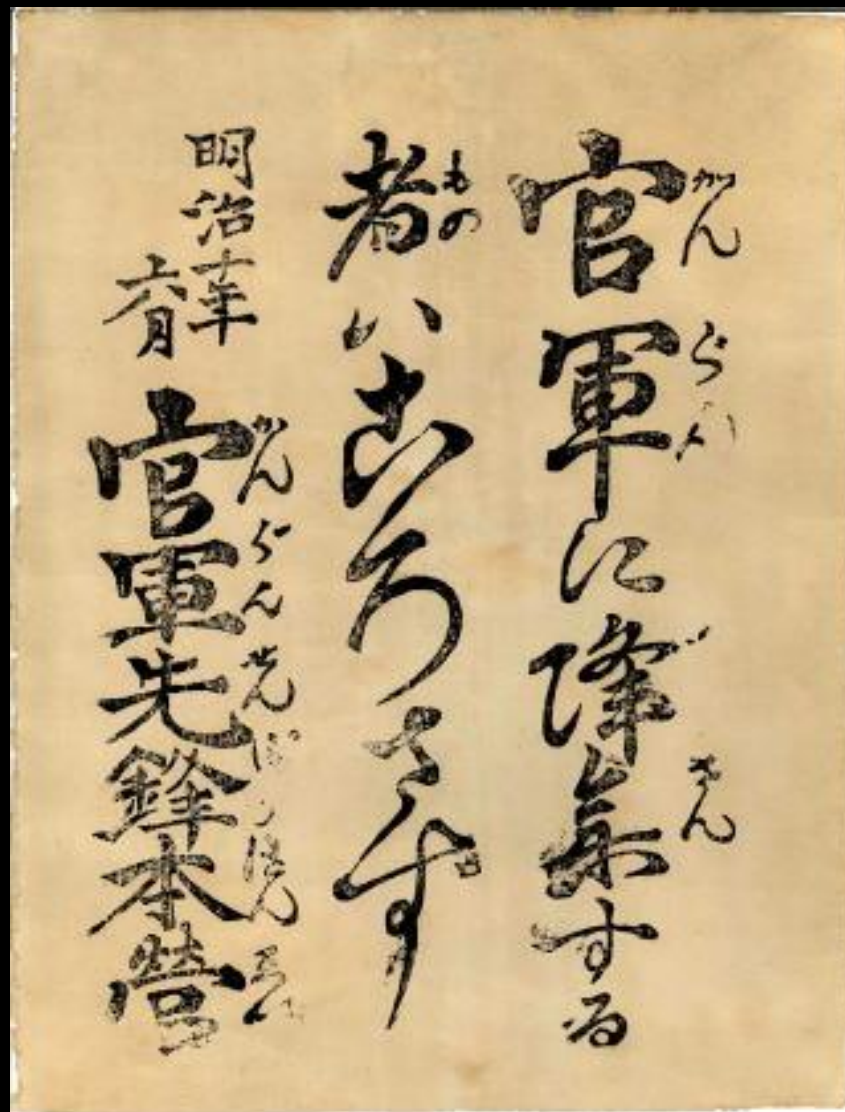 官軍に降参する
者ハころさず
明治十年
六月
官軍先鋒本營